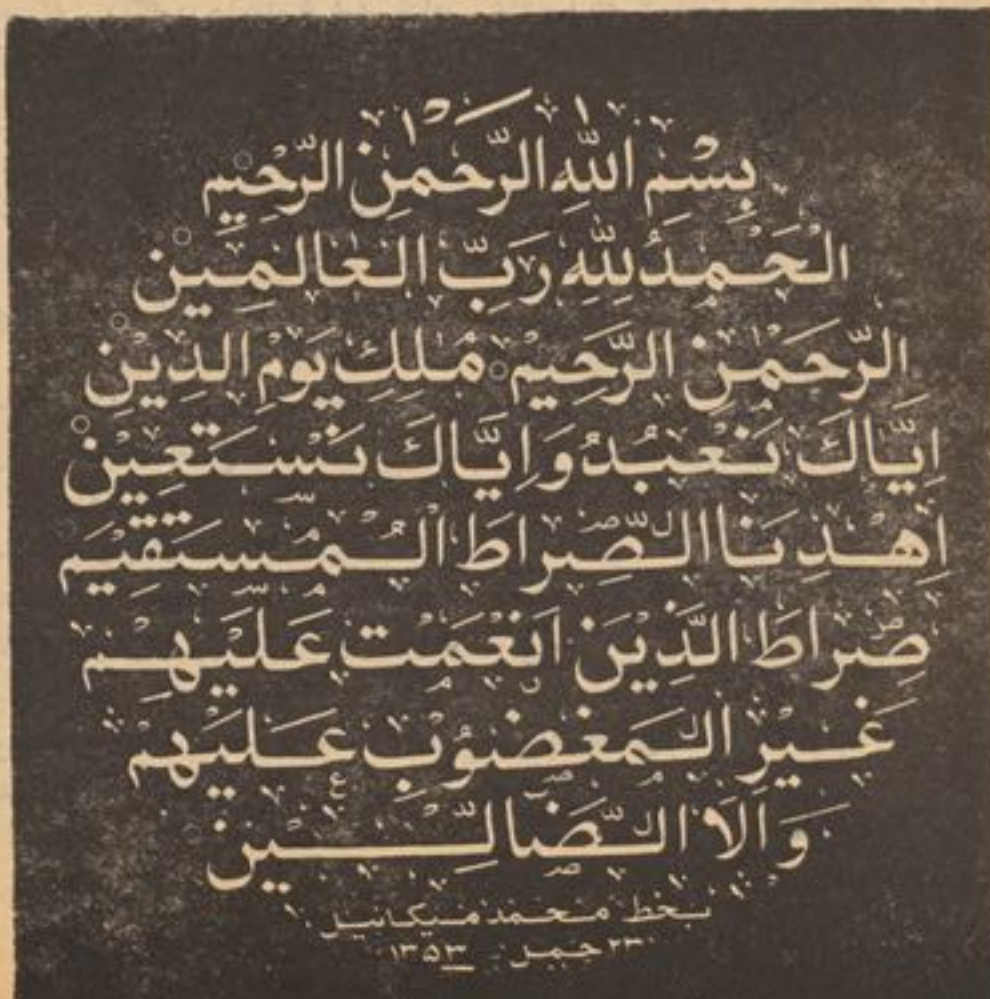 بِسْمِ اللّٰهِ الرَّحْمٰنِ الرَّحِيْمِ
الْحَمْدُ لِلّٰهِ رَبِّ الْعَالَمِيْن
الرَّحْمٰنِ الرَّحِيْمِ مٰلِكِ يَوْمِ الدِّيْنِ
اِيَّاكَ نَعْبُدُ وَاِيَّاكَ نَسْتَعِيْن
اِهْدِنَا الصِّرَاطَ الْمُسْتَقِيْمَ
صِرَاطَ الَّذِيْنَ اَنْعَمْتَ عَلَيْهِمْ
غَيْرِ الْمَغْضُوْبِ عَلَيْهِمْ
وَلَا الضَّالِّيْن
بخط محمد میکائیل
۲۳ حمل - ۱۳۵۳